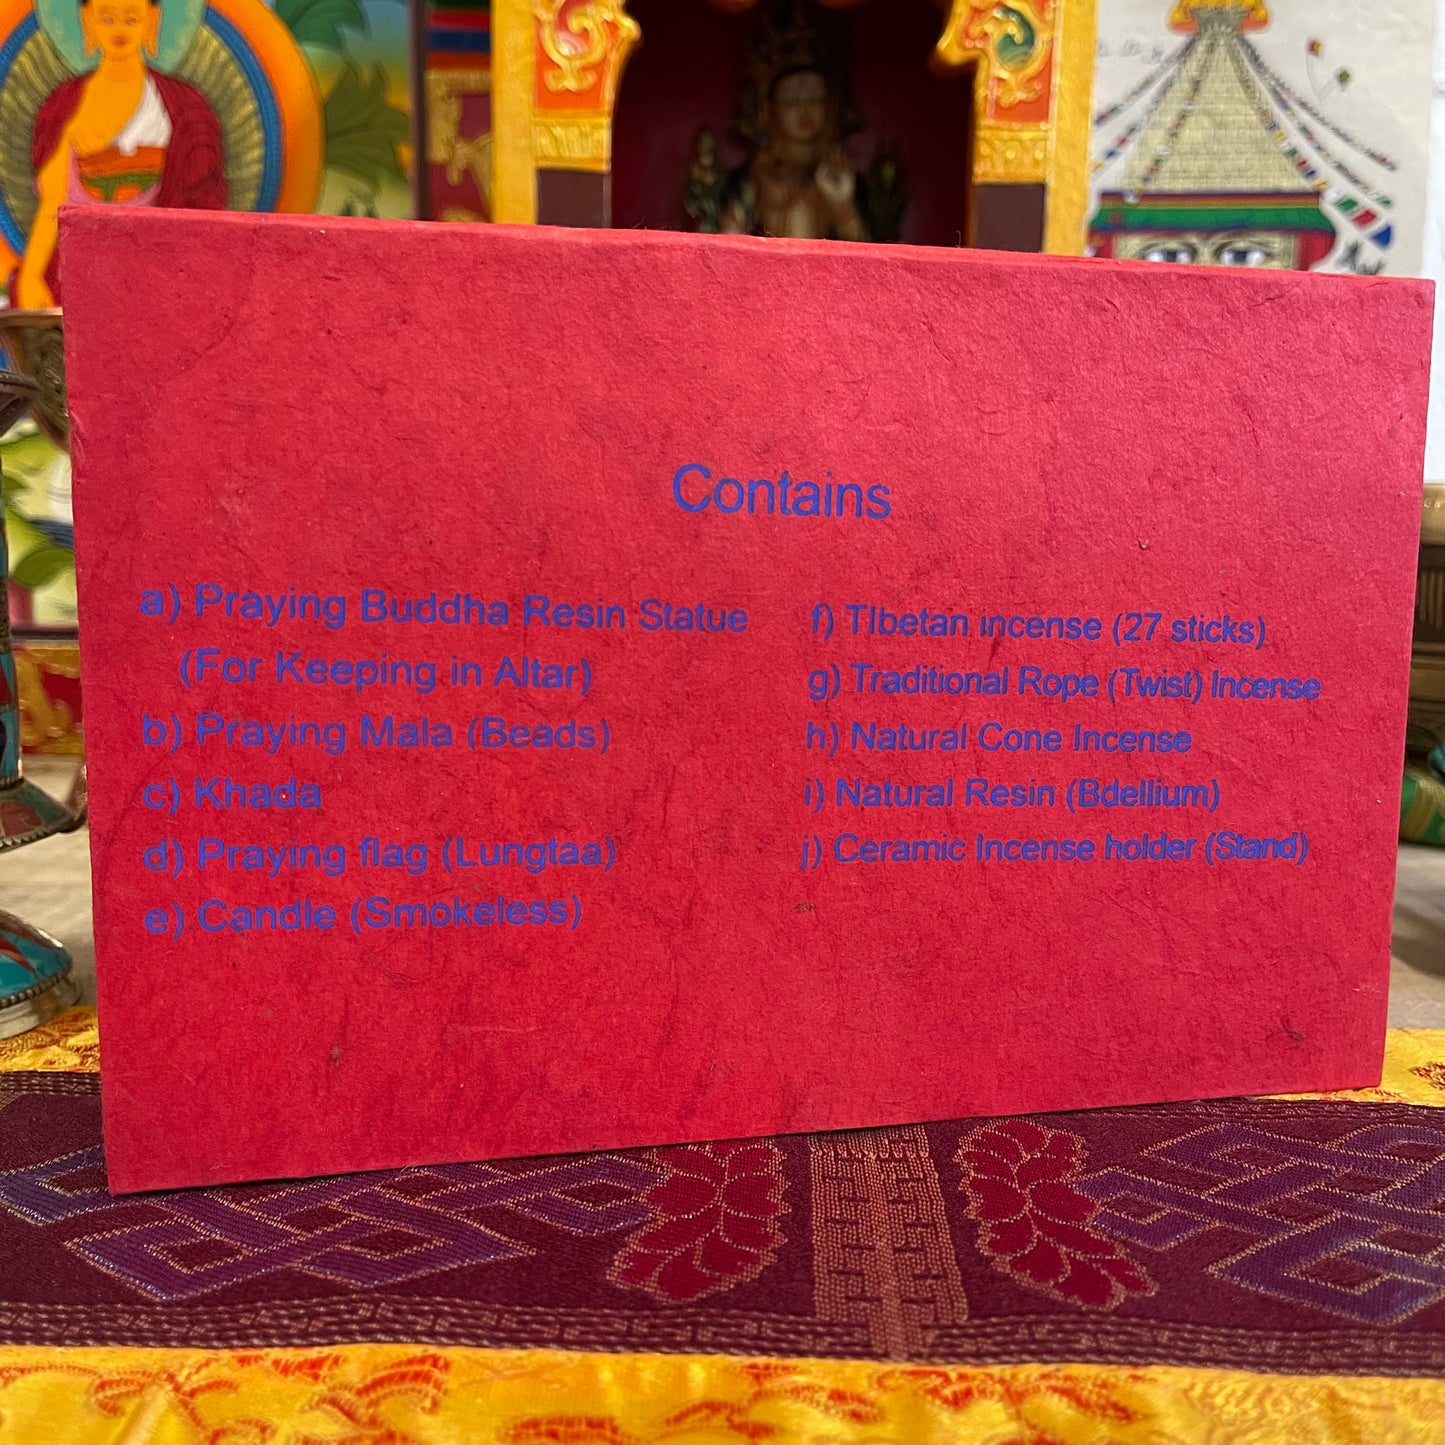 Contains
a) Praying Buddha Resin Statue
(For Keeping in Altar)
b) Praying Mala (Beads)
c) Khada
d) Praying flag (Lungtaa)
e) Candle (Smokeless)
f) TIbetan incense (27 sticks)
g) Traditional Rope (Twist) Incense
h) Natural Cone Incense
i) Natural Resin (Bdellium)
j) Ceramic Incense holder (Stand)